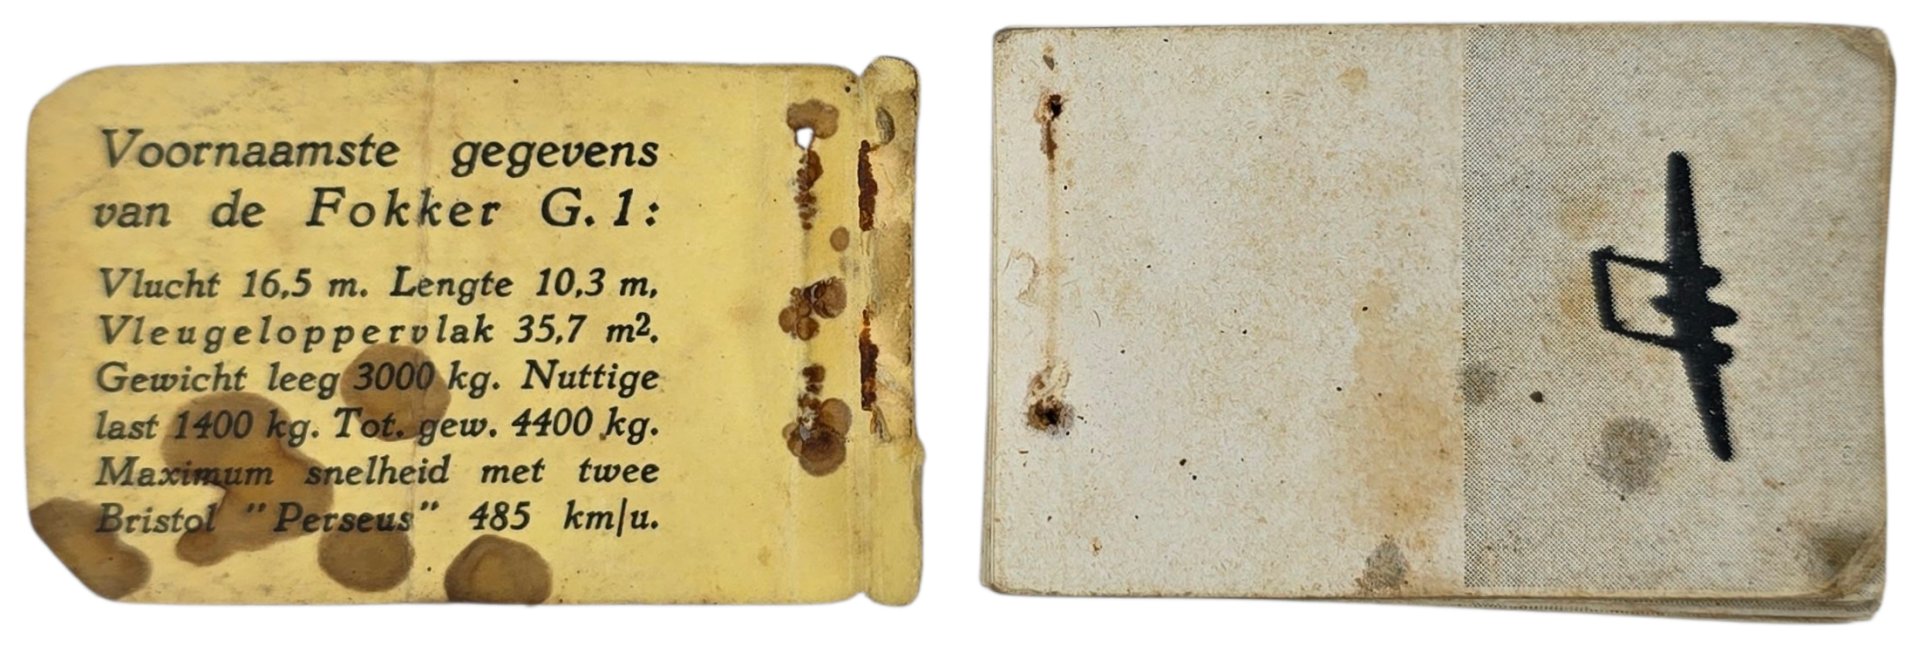 Voornaamste gegevens
van de Fokker G.1:
Vlucht 16,5 m. Lengte 10,3 m,
Vleugeloppervlak 35,7 m².
Gewicht leeg 3000 kg. Nuttige
last 1400 kg. Tot. gew. 4400 kg.
Maximum snelheid met twee
Bristol "Perseus" 485 km/u.